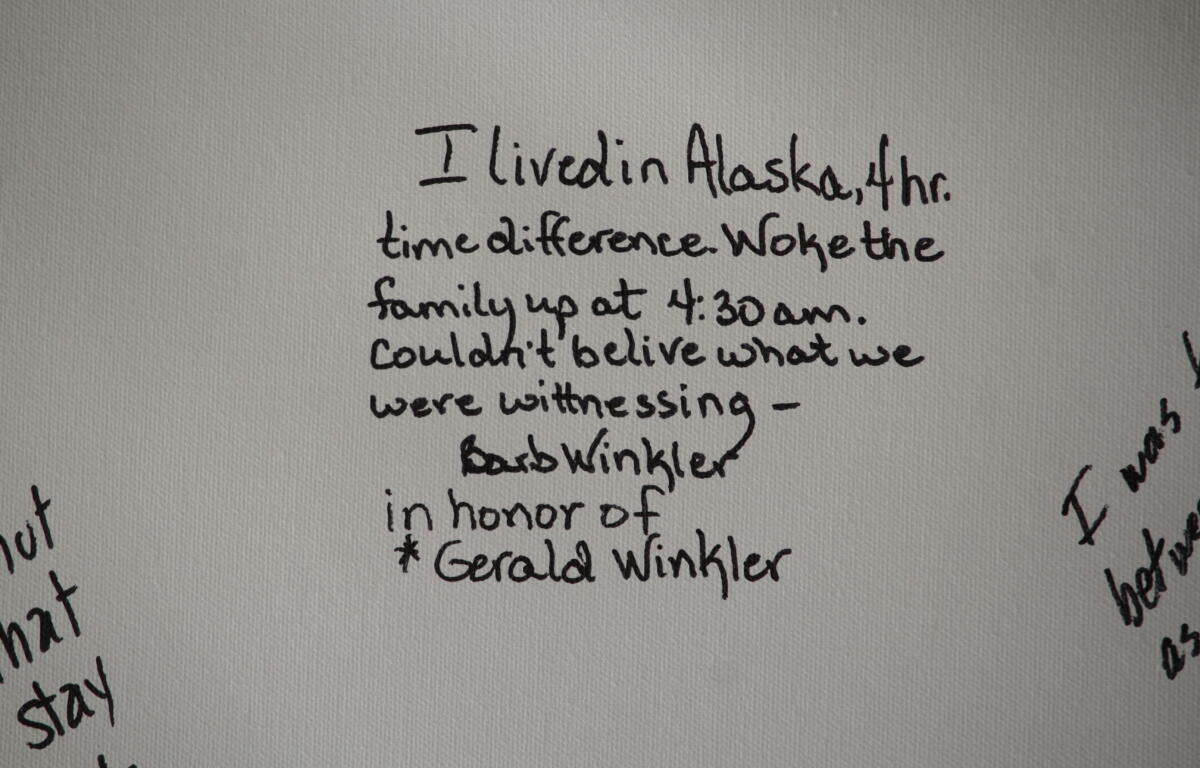 I lived in Alaska, 4 hr.
time difference. Woke the
family up at 4:30 am.
couldn't belive what we
were wittnessing –
Barb Winkler
in honor of
* Gerald Winkler
stay
I was
as